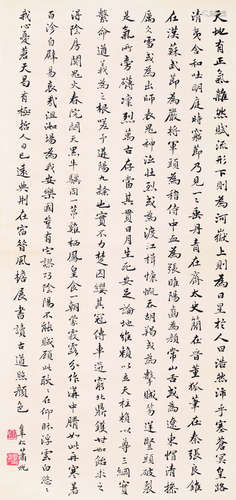 天地有正氣雜然賦流形下則為河嶽上則為日星於人曰浩然沛乎塞蒼冥皇路
清夷含和吐明庭時窮節乃見一一垂丹青在齊太史簡在晉董狐筆在秦張良錐
在漢蘇武節為嚴將軍頭為嵇侍中血為張睢陽齒為顏常山舌或為遼東帽清操
厲冰雪或為出師表鬼神泣壯烈或為渡江楫慷慨吞胡羯或為擊賊笏逆豎頭破裂
是氣所磅礴凜烈萬古存當其貫日月生死安足論地維賴以立天柱賴以尊三綱實
繫命道義為之根嗟予遘陽九隸也實不力楚囚纓其冠傳車送窮北鼎鑊甘如飴求之
得陰房闃鬼火春院閟天黑牛驥同一皂雞棲鳳凰食一朝蒙霧露分作溝中瘠如此再寒暑
百沴自辟易哀哉沮洳場為我安樂國豈有他謬巧陰陽不能賊顧此耿耿在仰視浮雲白悠悠
我心憂蒼天曷有極哲人日已遠典刑在宿昔風檐展書讀古道照顏色